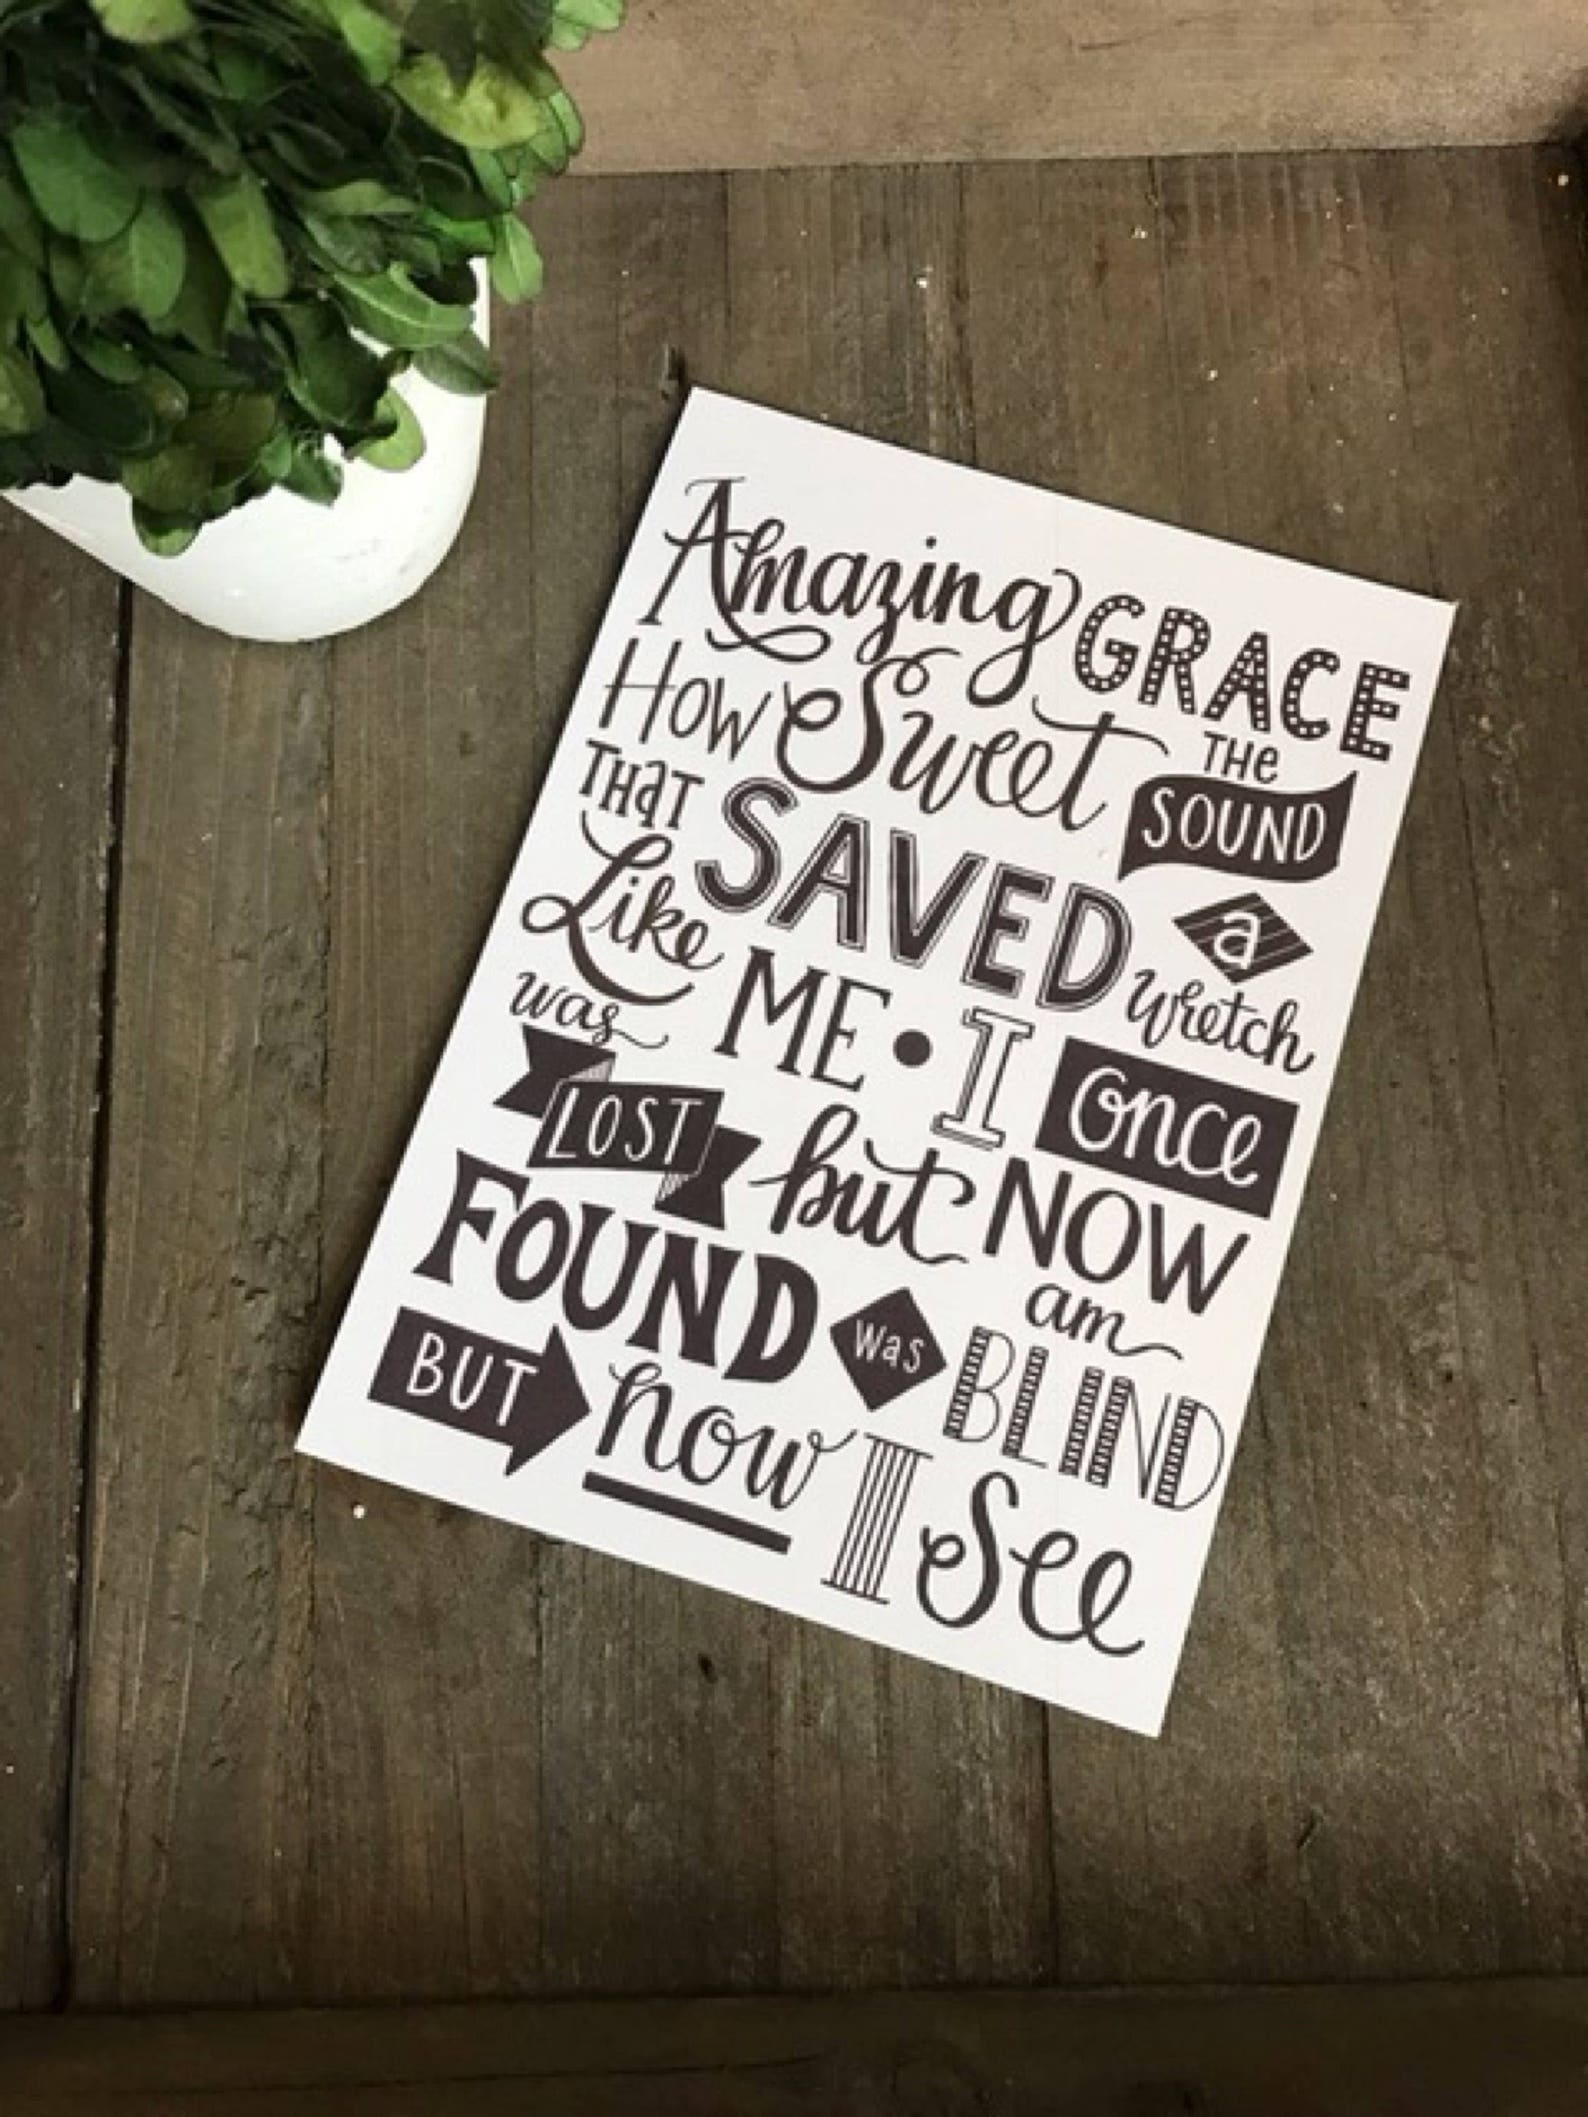 Amazing GRACE
How Sweet THe SOUND
THaT SAVED a wretch
Like ME • I once
was LOST but NOW am
FOUND was BLIND
BUT now I See